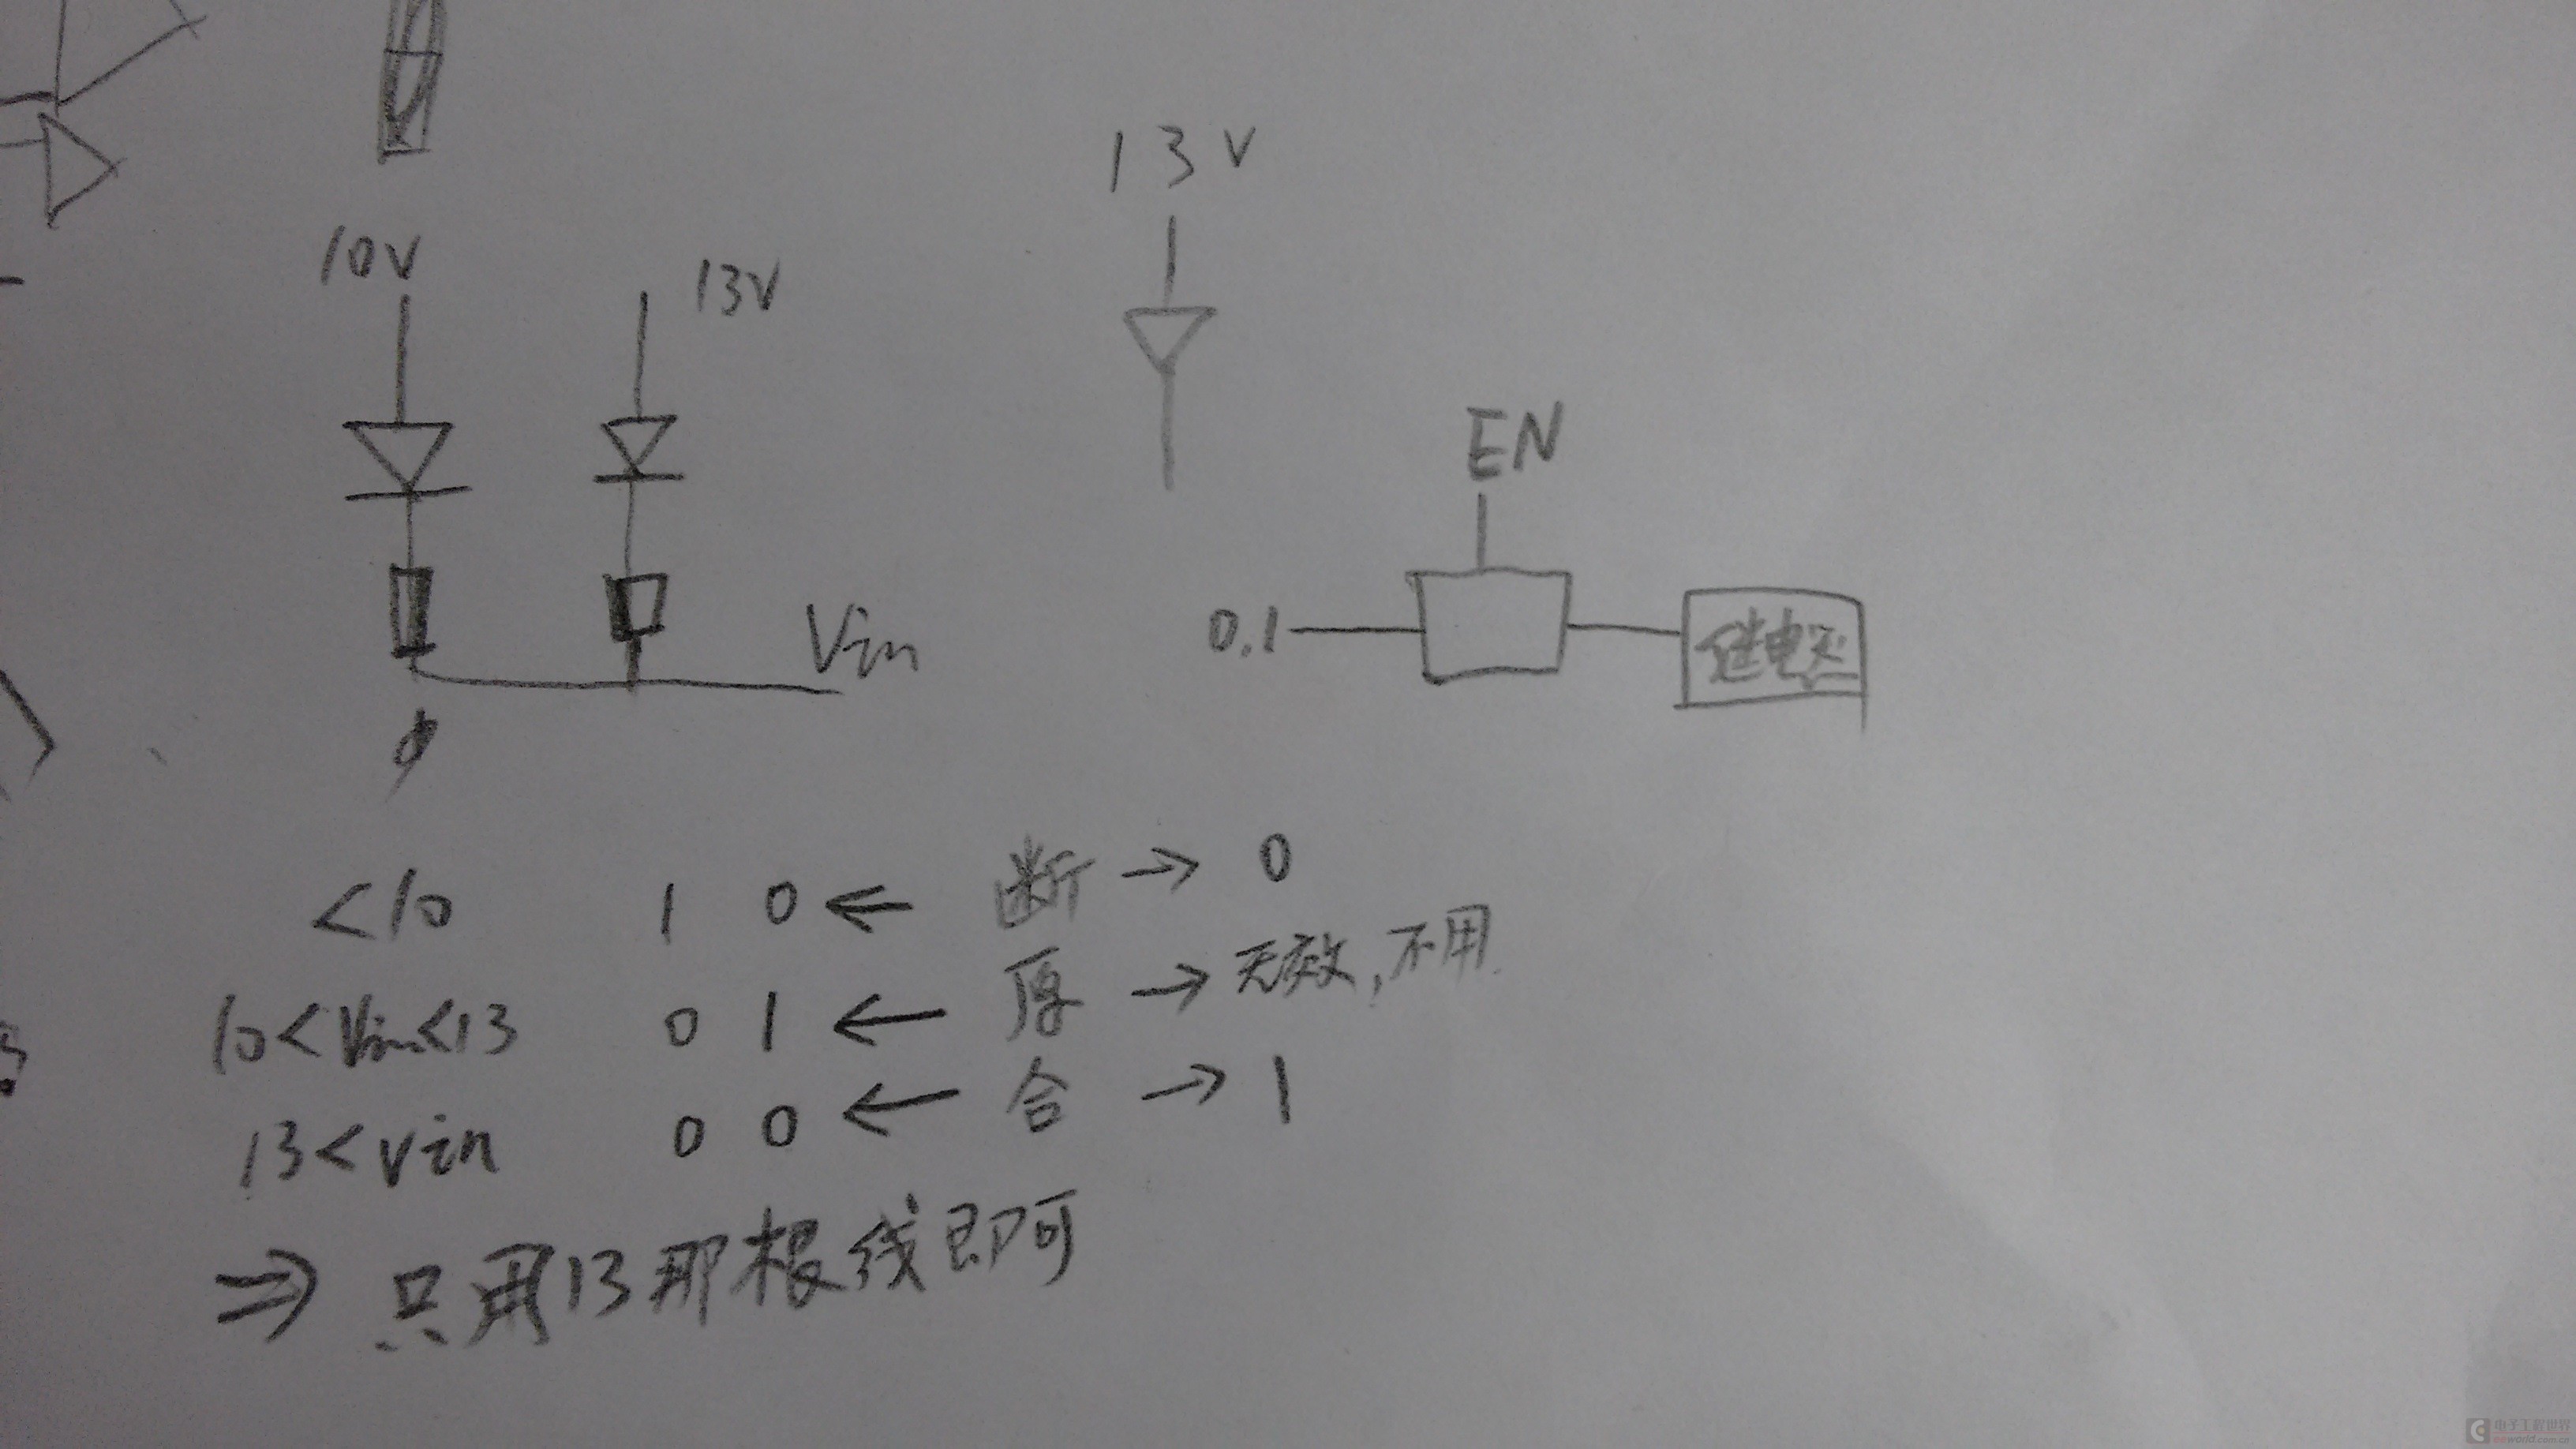 13V
10V
13V
EN
Vin
0.1
继电器
<10 1 0 ← 断 → 0
10<Vin<13 0 1 ← 厚 → 无效,不用.
13<vin 0 0 ← 合 → 1
⇒ 只用13那根线即可
电子工程世界
eeworld.com.cn